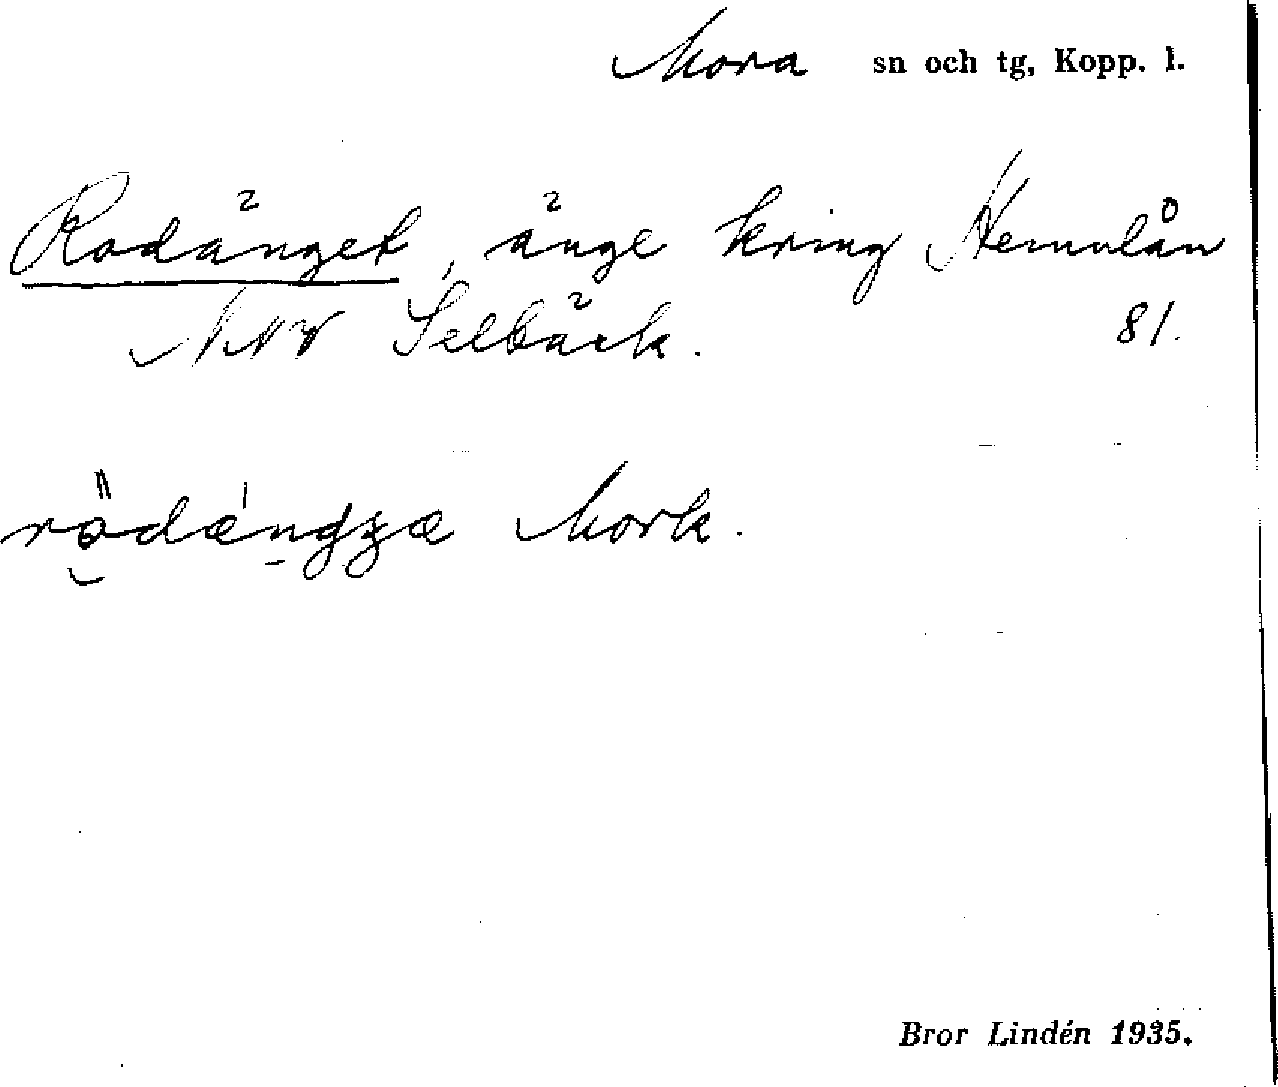 Mora sn och tg, Kopp. l.
Rodänget, änge kring Hemulån
NNV Selbäck. 81.
Mork.
Bror Lindén 1935.